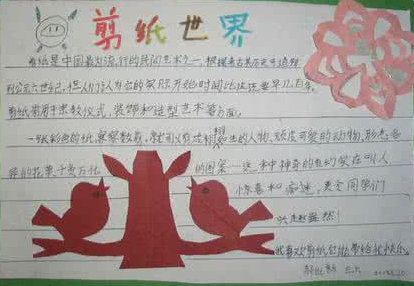 剪纸世界
剪纸是中国最为流行的民间艺术之一,根据考古其历史可追溯
到公元六世纪,但人们认为它的实际开始时间比这还要早几百年。
剪纸常用于宗教仪式,装饰和造型艺术等方面。
一张彩色的纸寥寥数剪,就可以剪成栩栩如生的人物,顽皮可爱的动物,形态各
异的花草,千变万化的图案……这种神奇的
惊喜和
兴趣盎然!
我喜欢剪纸它能带给我快乐。